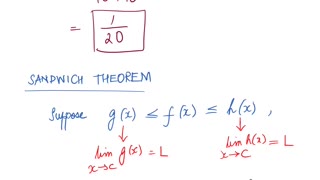 = 1/20
SANDWICH THEOREM
Suppose g(x) ≤ f(x) ≤ h(x) ,
↓ ↓
lim x→c g(x) = L lim x→c h(x) = L